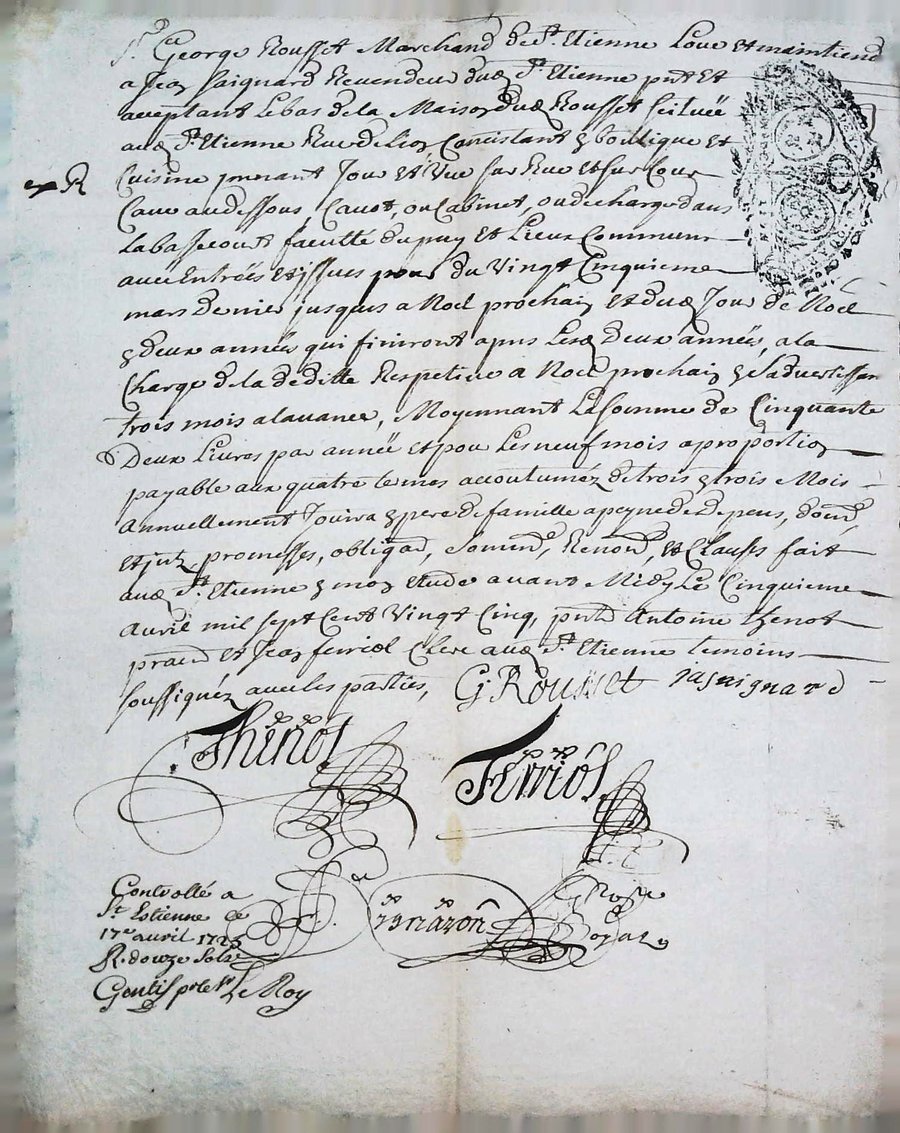 Sr. George Rousset Marchand de St. Etienne Loue et maintiend
a Jean Saignard Revendeur dud St. Etienne pnt et
acceptant Lebas de la Maison dud Rousset scituée
aud St. Etienne Rue de Lion Consistant en boutique et
exR
Cuisine prenant Jour et Vue sur Rue et sur Cour
Cave au dessous, Cavot, ou Cabinet, ou decharge dans
la bassecourt faculté du puy et Lieux Communs
avec Entrées et jssues pour du Vingt Cinquieme
mars Dernier jusques a Noel prochain et dud Jour de Noel
en deux années qui finiront apres Lesd Deux années, a la
Charge de la deditte Respetive a Noel prochain en Sadvertissant
trois mois alavance, Moyennant La somme de Cinquante
Deux Livres par année et pour Les neuf mois a proportion
payable aux quatre termes accoutuméz de trois en trois Mois
Annuellement Jouira en pere de famille a peyne de Depens, dom
et jntz, promesses, obligaõns, Renonõns, et Clauses fait
aud St. Etienne en mon Etude avant Midy Le Cinquieme
Avril mil sept Cent Vingt Cinq, pnts Antoine Thenot
pracn et Jean ferriol Clerc aud St. Etienne temoins
soussignéz avec les parties, G. Rousset jasaignard
Thenot
Ferriol
Controllé a
St. Estienne le
17e avril 1725
R. douze Sols
Gentis pr le Sr Le Roy